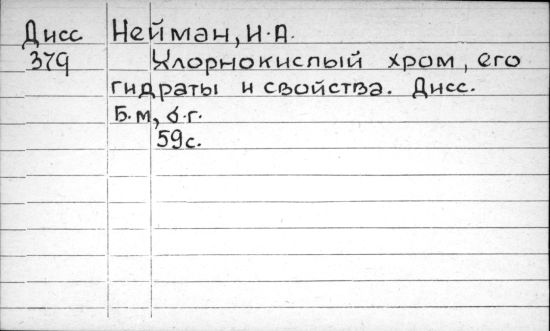 Дисс Нейман, И.А.
379 Хлорнокислый хром, его
гидраты и свойства. Дисс.
Б.м, б.г.
59с.